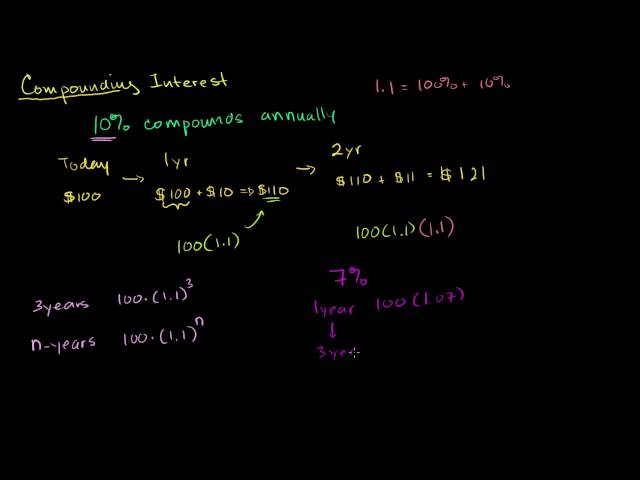 Compounding Interest
1.1 = 100% + 10%
10% compounds annually
Today → 1yr → 2yr
$100 $100 + $10 ⇒ $110 $110 + $11 = $121
100(1.1) 100(1.1)(1.1)
7%
3years 100·(1.1)³
1year 100(1.07)
n-years 100·(1.1)ⁿ
↓
3yea